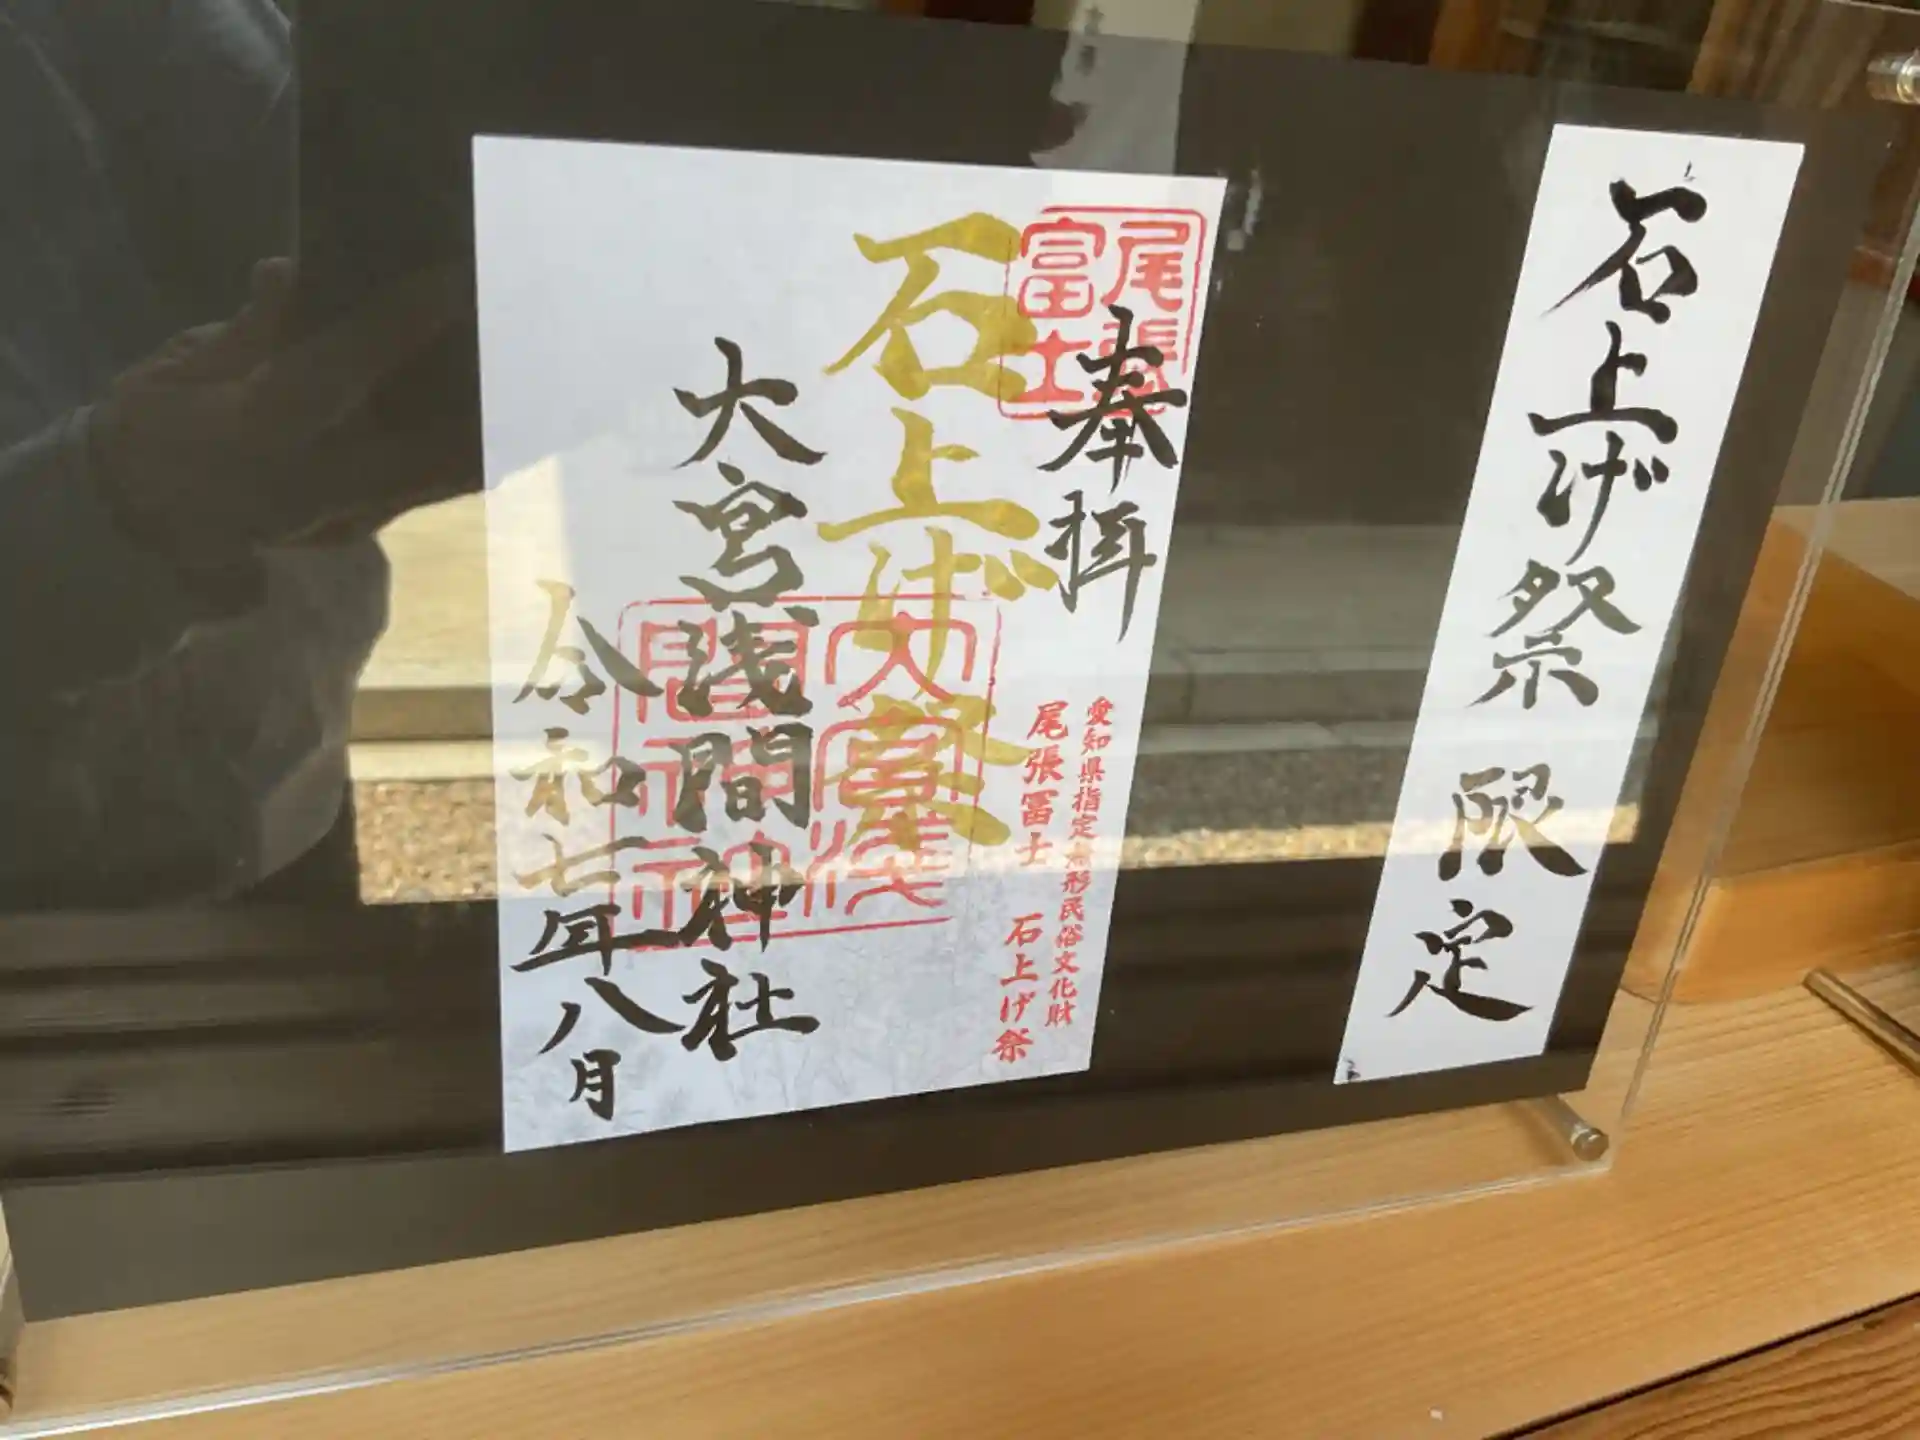 石上げ祭 限定
尾張
富士
奉拝
愛知県指定無形民俗文化財
尾張冨士 石上げ祭
石上げ祭
大宮浅間神社
大宮浅
間神社
令和七年八月